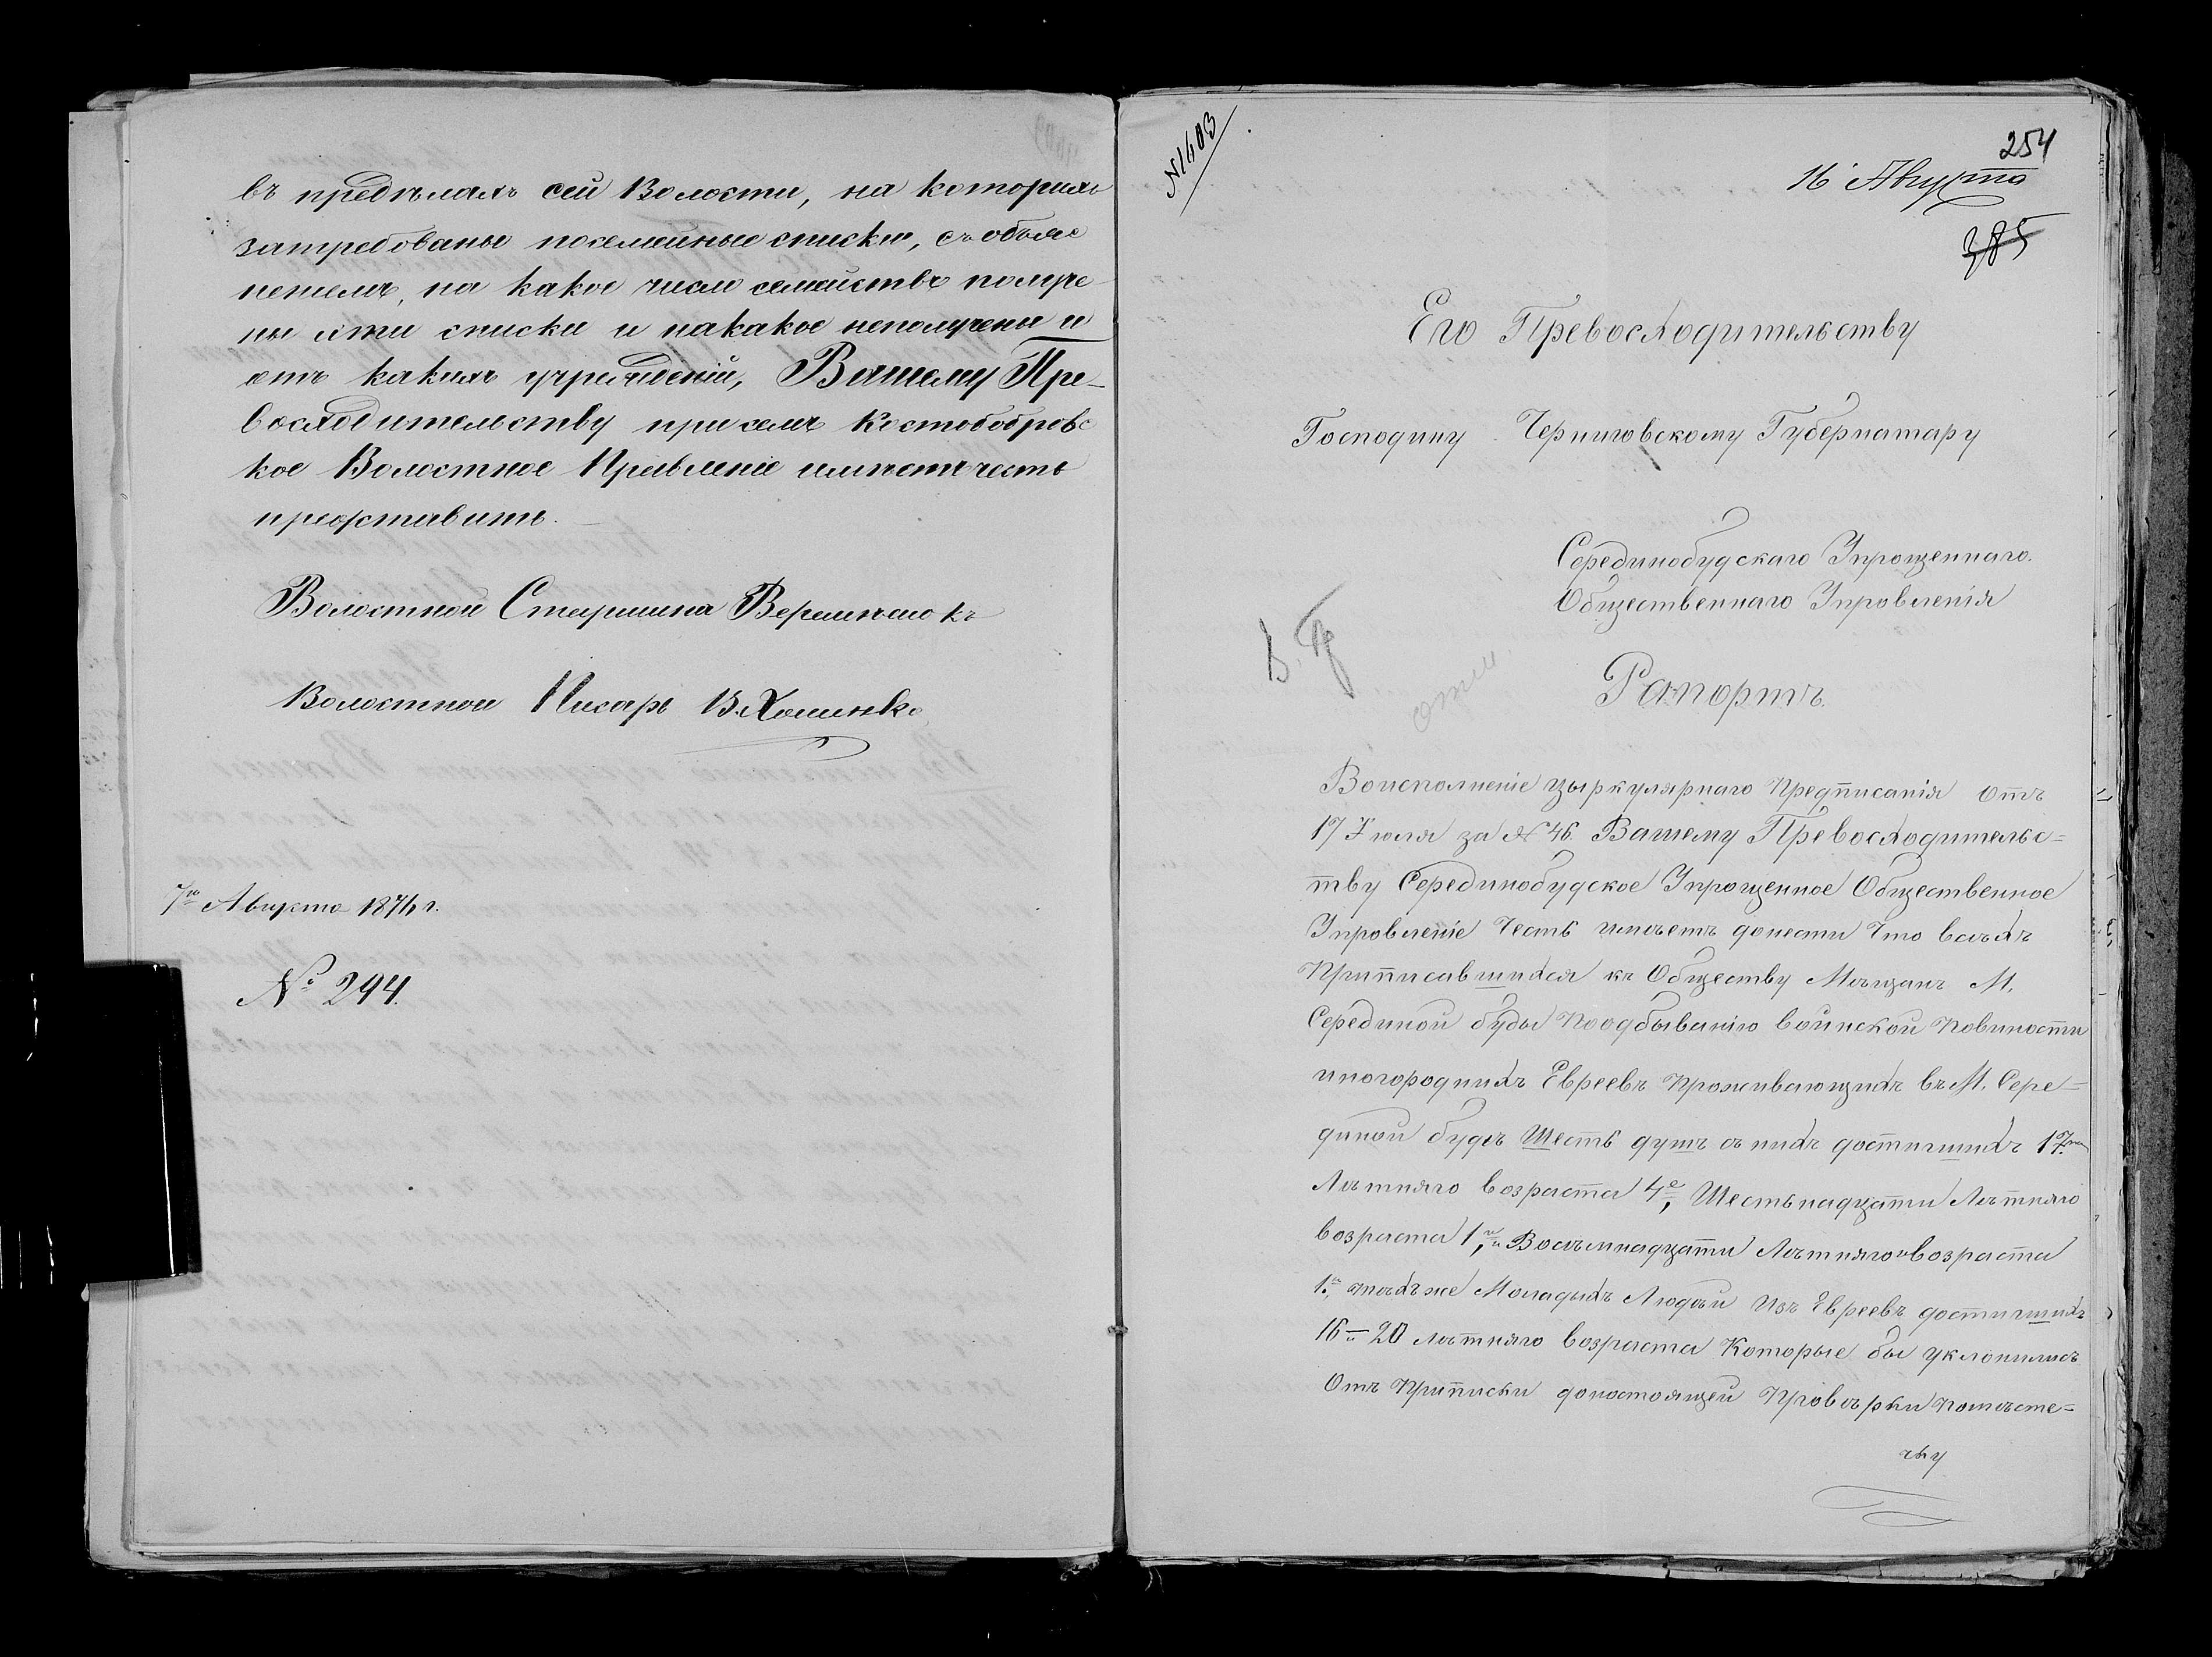 въ пределахъ сей Волости, на которыхъ
затребованы посемейные списки, съ объяс
неніемъ, на какое число семействъ получе-
ны эти списки и накакое неполучены и
отъ какихъ учрежденій, Вашему Пре-
восходительству присемъ Костобобровс
кое Волостное Правленіе имѣетъ честь
представить.
Волостной Старшина
Волостной Писарь В. Хоменко
7го Августа 1874 г.
№ 294.
№1403
254
16 Августа
385
Его Превосходительству
Господину Черниговскому Губернатару
Серединобудскаго Упрощеннаго
Общественнаго Упровленія
Рапортъ.
Воисполненіе цыркулярнаго Предписанія Отъ
17 Іюля за № 46 Вашему Превосходительс=
тву Серединобудское Упрощенное Общественное
Упровленіе Честь имѣетъ донести Что всѣхъ
Приписавшихся къ Обществу Мѣщанъ М.
Серединой буды Поодбыванію воинской Повиности
иногороднихъ Евреевъ Проживающихъ въ М. Сере=
диной будѣ Шесть душъ съ нихъ достигшихъ 17ти
Лѣтняго возраста 4е, Шестьнадцати Лѣтняго
возраста 1н, Восѣмнадцати Лѣтняго возраста
1н, тѣхъже Моладыхъ Людѣй Изъ Евреевъ достигшихъ
16–20 лѣтняго возраста Которые бы уклонились
Отъ Приписки доностоящей Провѣрки Помѣсте=
чку